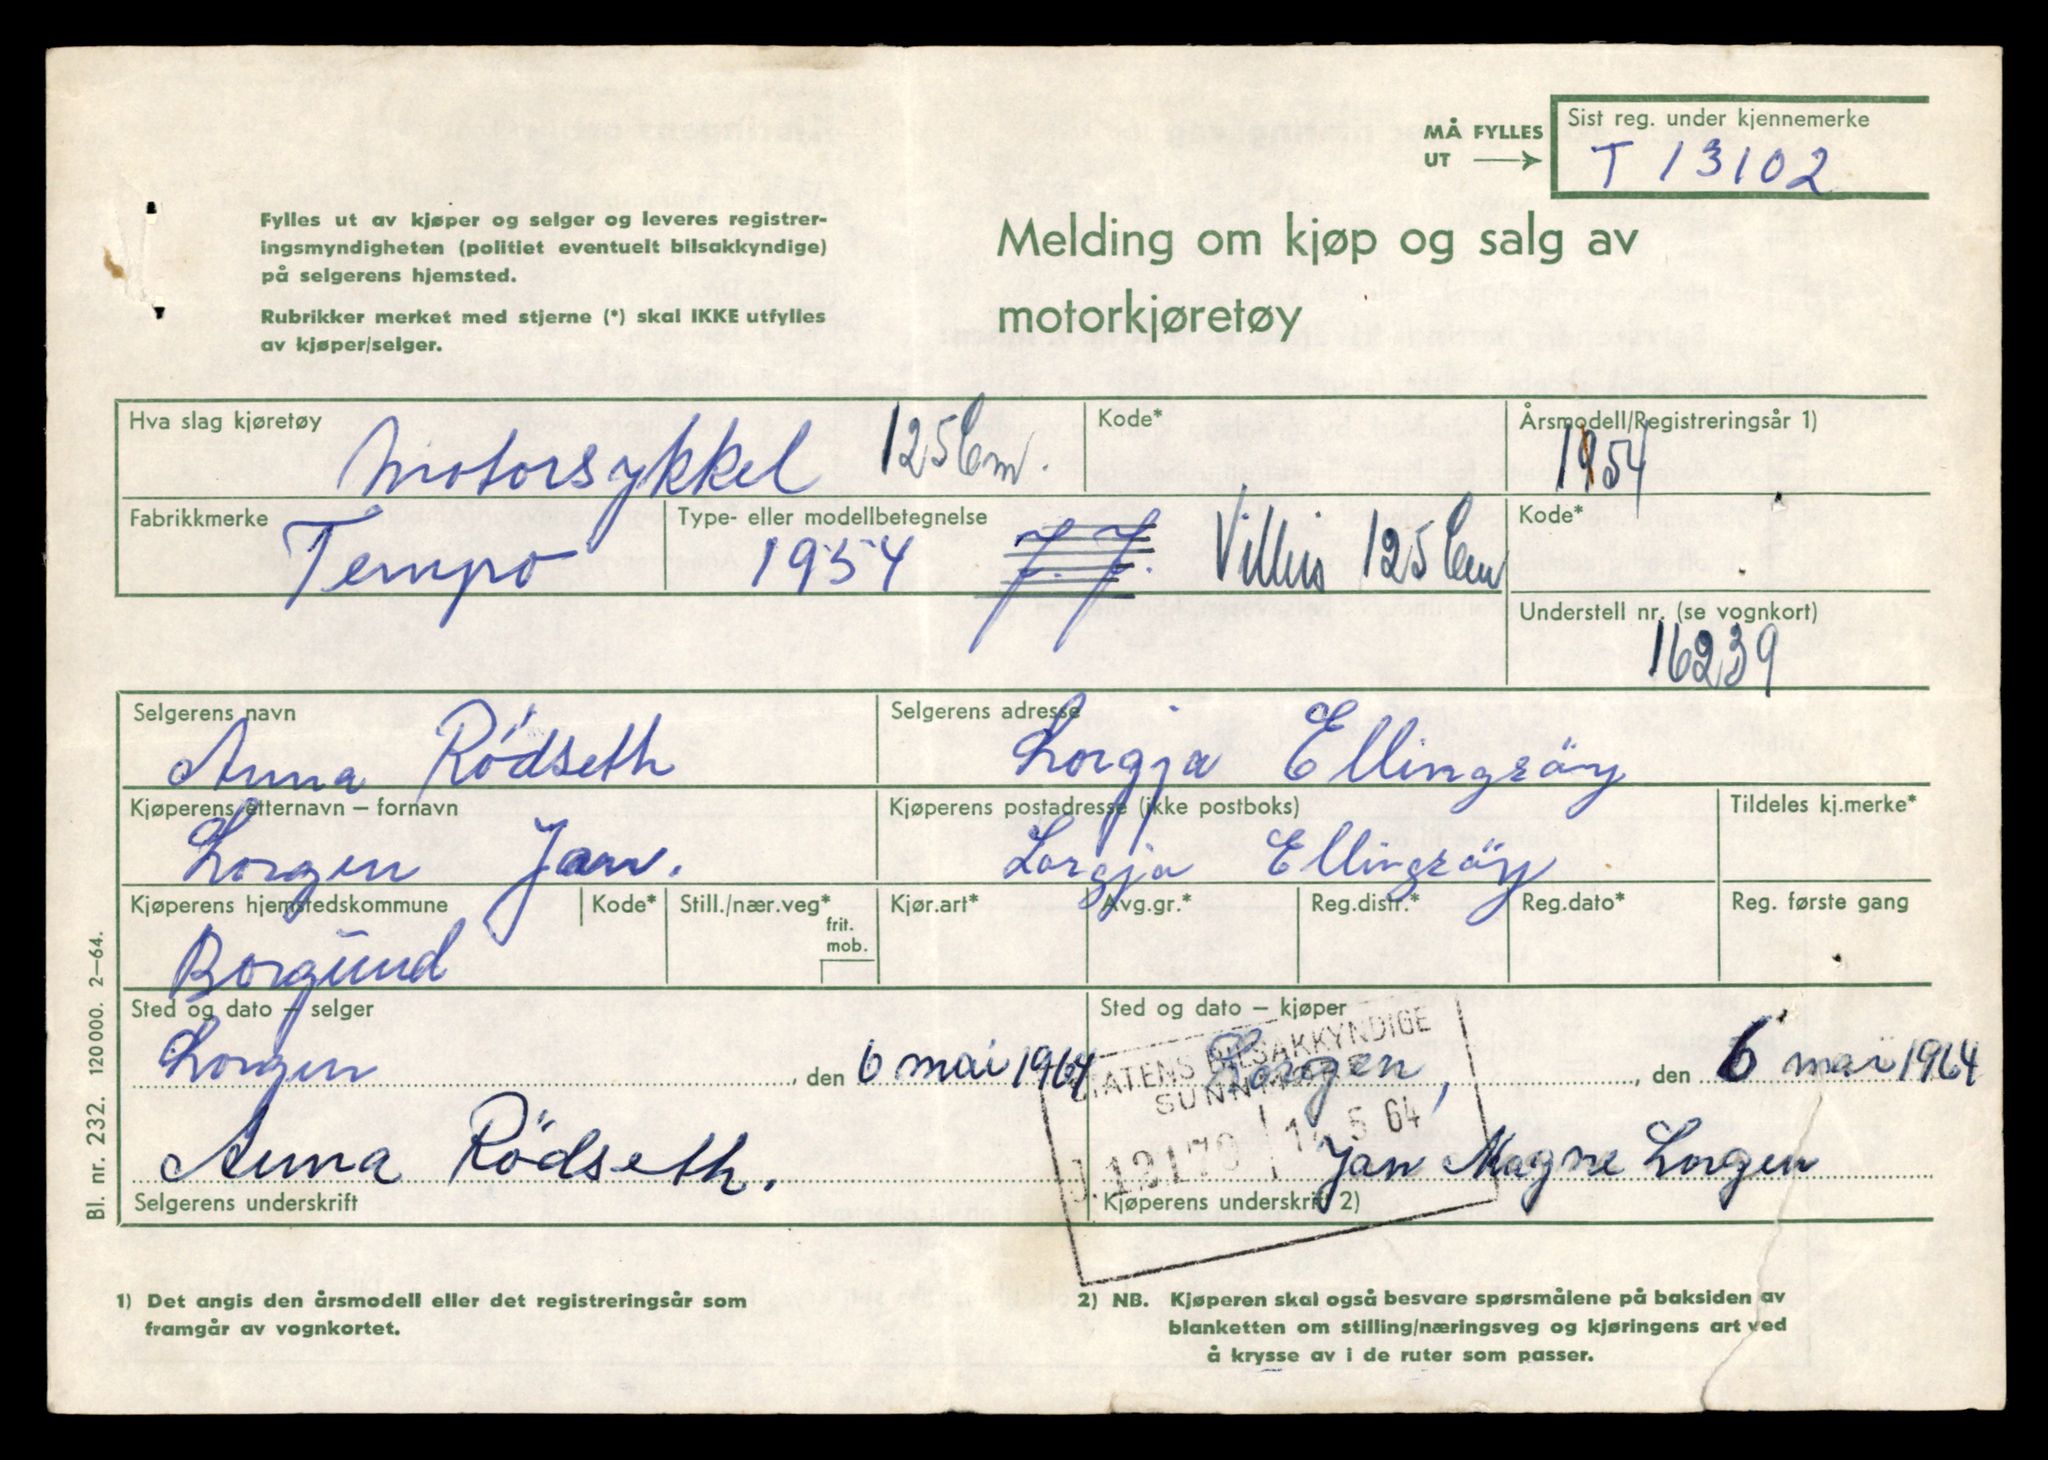 MÅ FYLLES
UT
Sist reg. under kjennemerke
T 13102
Fylles ut av kjøper og selger og leveres registrer-
ingsmyndigheten (politiet eventuelt bilsakkyndige)
på selgerens hjemsted.
Rubrikker merket med stjerne (*) skal IKKE utfylles
av kjøper/selger.
Melding om kjøp og salg av
motorkjøretøy
Hva slag kjøretøy
Motorsykkel 125 Ccm.
Kode*
Årsmodell/Registreringsår 1)
1954
Fabrikkmerke
Tempo
Type- eller modellbetegnelse
1954 Villis 125 Ccm
Kode*
Understell nr. (se vognkort)
16239
Selgerens navn
Anna Rödseth
Selgerens adresse
Lorgja Ellingsöy
Kjøperens etternavn – fornavn
Lorgen Jan.
Kjøperens postadresse (ikke postboks)
Lorgja Ellingsöy
Tildeles kj.merke*
Kjøperens hjemstedskommune
Borgund
Kode*
Still./nær.veg*
frit.
mob.
Kjør.art*
Avg.gr.*
Reg.distr.*
Reg.dato*
Reg. første gang
Sted og dato – selger
Lorgen, den 6 mai 1964
Anna Rödseth.
Selgerens underskrift
Sted og dato – kjøper
Lorgen, den 6 mai 1964
STATENS BILSAKKYNDIGE
14 5 64
Jan Magne Lorgen
Kjøperens underskrift 2)
Bl. nr. 232. 120 000. 2–64.
1) Det angis den årsmodell eller det registreringsår som
framgår av vognkortet.
2) NB. Kjøperen skal også besvare spørsmålene på baksiden av
blanketten om stilling/næringsveg og kjøringens art ved
å krysse av i de ruter som passer.